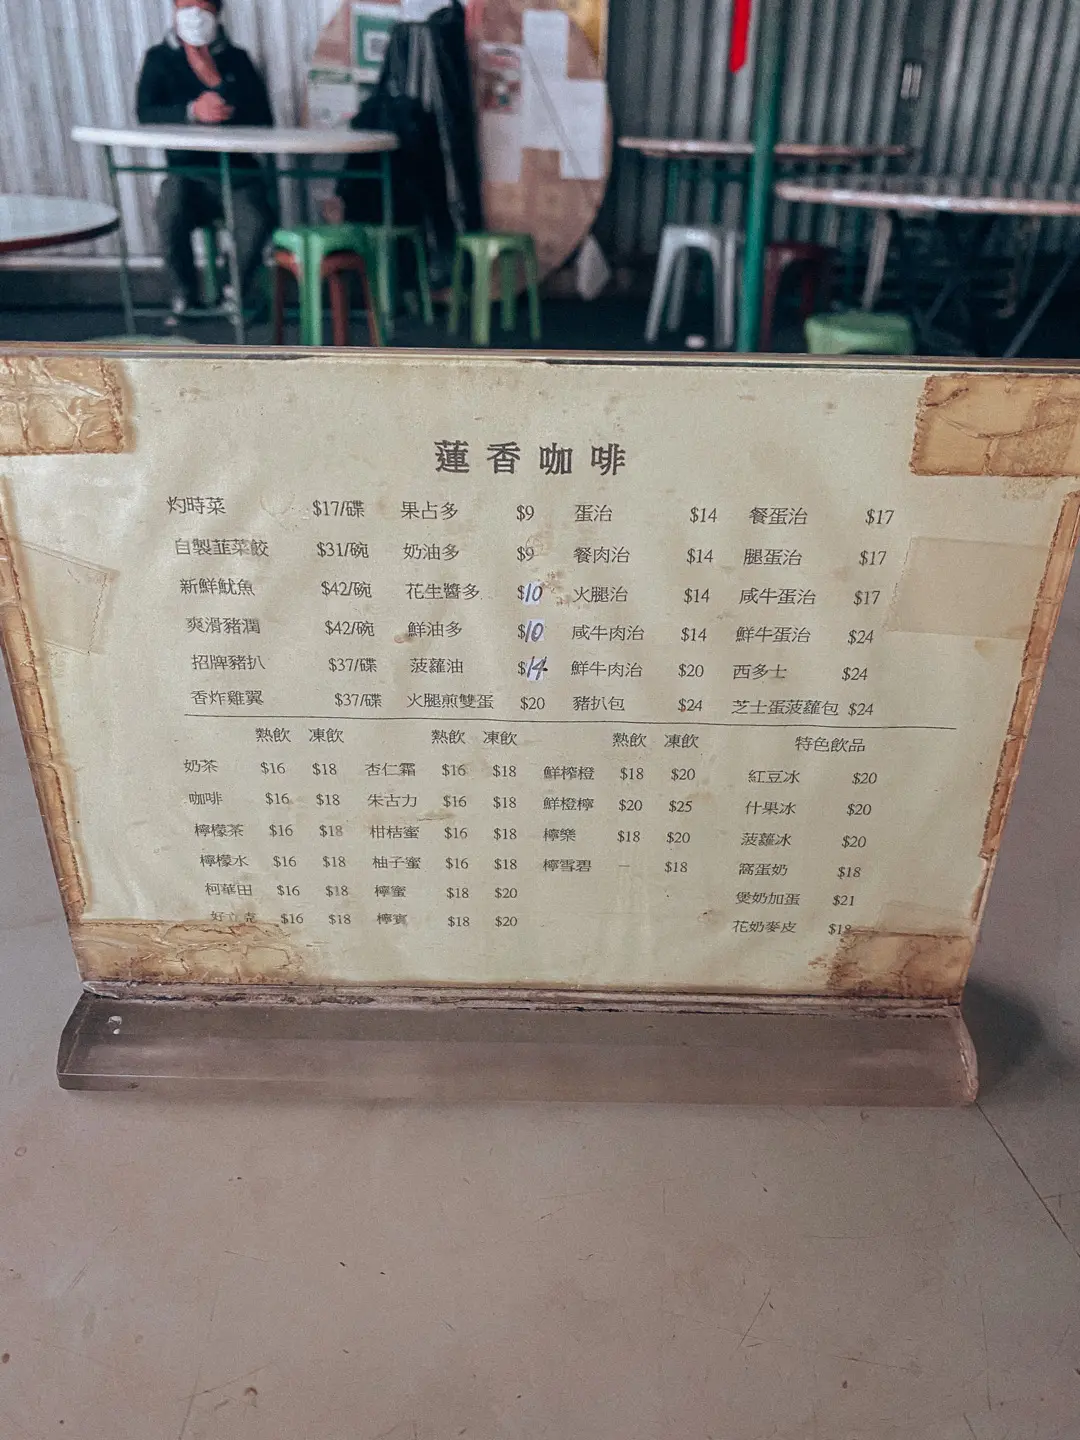 蓮香咖啡
灼時菜 $17/碟 果占多 $9 蛋治 $14 餐蛋治 $17
自製韮菜餃 $31/碗 奶油多 $9 餐肉治 $14 腿蛋治 $17
新鮮魷魚 $42/碗 花生醬多 $10 火腿治 $14 咸牛蛋治 $17
爽滑豬潤 $42/碗 鮮油多 $10 咸牛肉治 $14 鮮牛蛋治 $24
招牌豬扒 $37/碟 菠蘿油 $14 鮮牛肉治 $20 西多士 $24
香炸雞翼 $37/碟 火腿煎雙蛋 $20 豬扒包 $24 芝士蛋菠蘿包 $24
熱飲 凍飲 熱飲 凍飲 熱飲 凍飲 特色飲品
奶茶 $16 $18 杏仁霜 $16 $18 鮮榨橙 $18 $20 紅豆冰 $20
咖啡 $16 $18 朱古力 $16 $18 鮮橙檸 $20 $25 什果冰 $20
檸檬茶 $16 $18 柑桔蜜 $16 $18 檸樂 $18 $20 菠蘿冰 $20
檸檬水 $16 $18 柚子蜜 $16 $18 檸雪碧 – $18 窩蛋奶 $18
柯華田 $16 $18 檸蜜 $18 $20 煲奶加蛋 $21
好立克 $16 $18 檸賓 $18 $20 花奶麥皮 $18